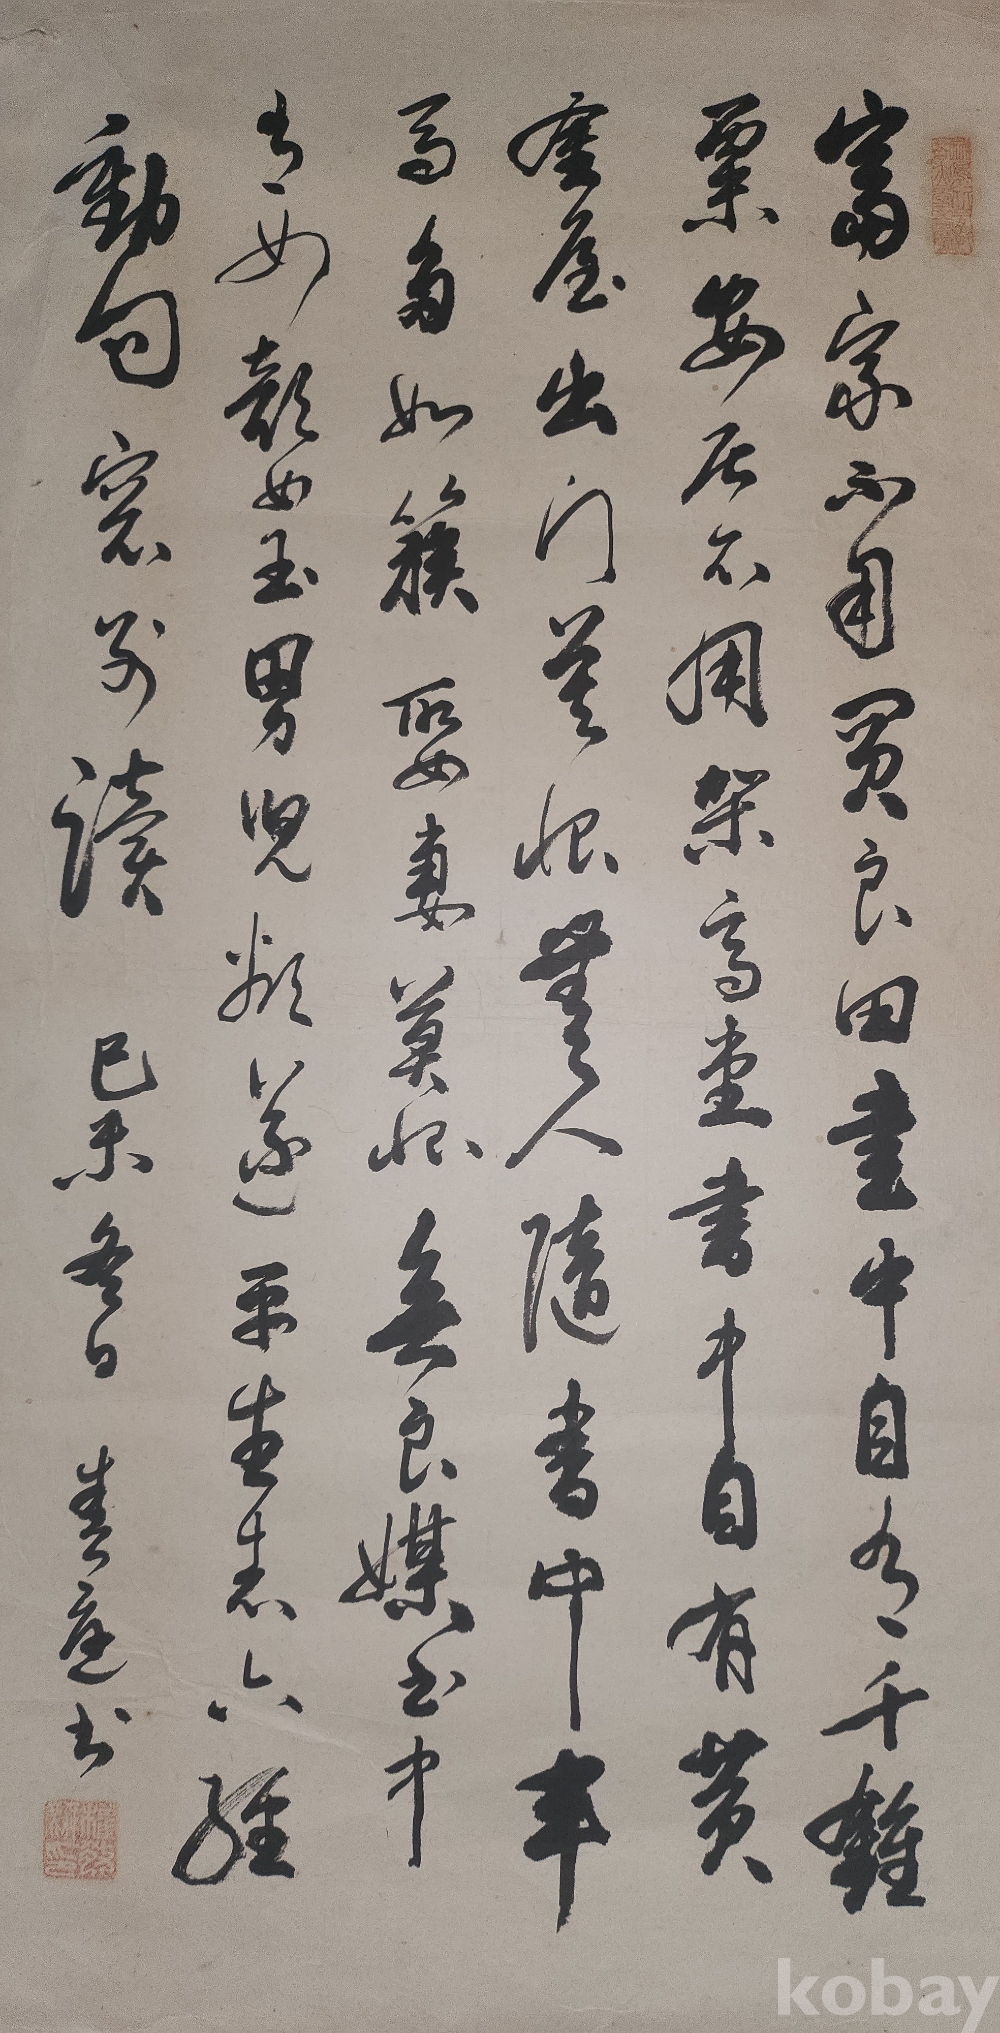 富家不用買良田書中自有千鍾
粟安居不用架高堂書中自有黄
金屋出门莫恨無人隨書中車
馬多如簇娶妻莫恨無良媒書中
有女顔如玉男児欲遂平生志六經
勤向窓前讀 己未冬日 庭書
kobay